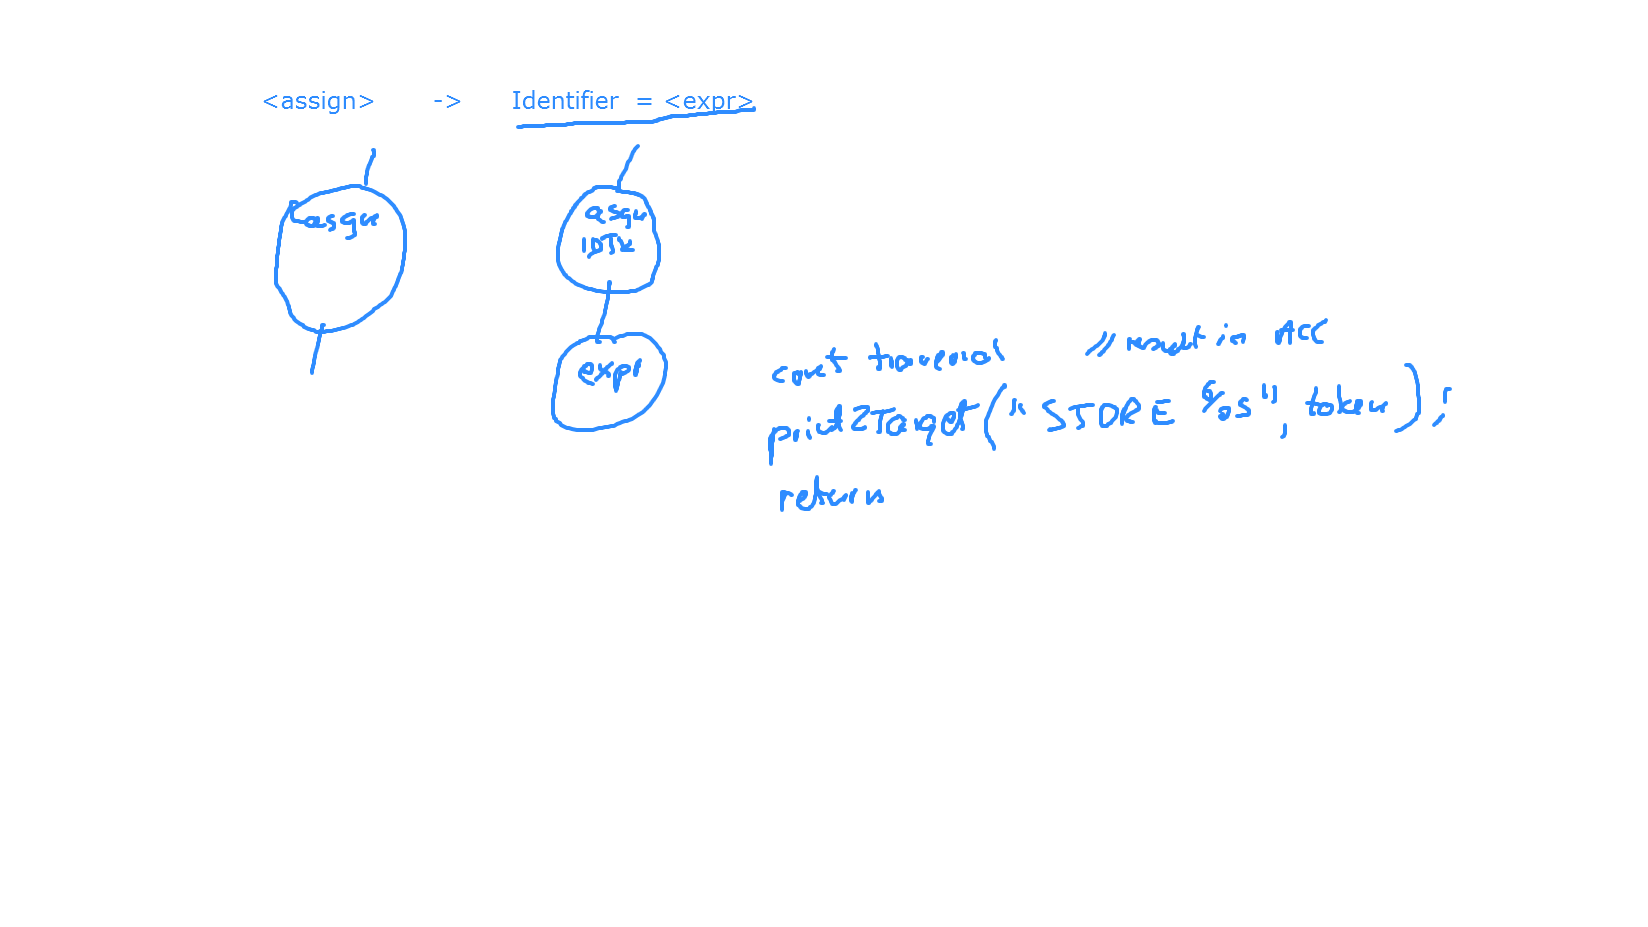 <assign> -> Identifier = <expr>
asgn
asgn
IDTk
expr
cont traversal // result in ACC
print2Target("STORE %s", token);
return